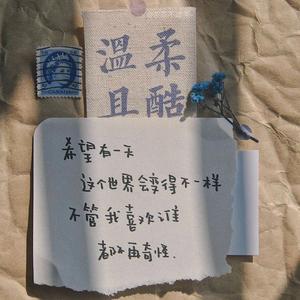 温柔
且酷
希望有一天
这个世界会变得不一样
不管我喜欢谁
都不再奇怪.